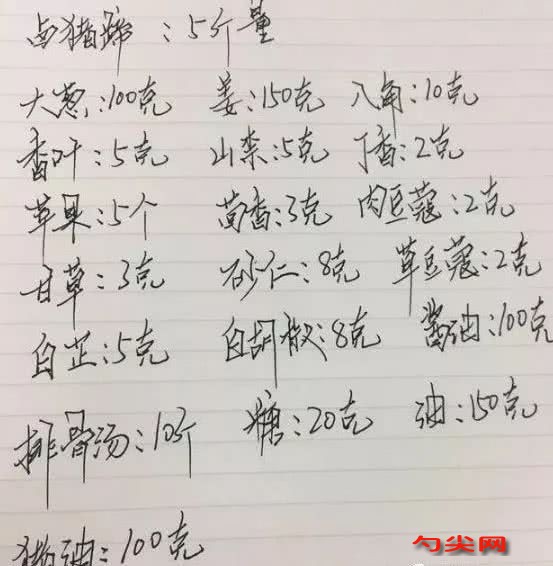 卤猪蹄：5斤量
大葱：100克 姜：150克 八角：10克
香叶：5克 山柰：5克 丁香：2克
草果：5个 茴香：3克 肉豆蔻：2克
甘草：3克 砂仁：8克 草豆蔻：2克
白芷：5克 白胡椒：8克 酱油：100克
排骨汤：10斤 糖：20克 油：150克
猪油：100克
勺尖网